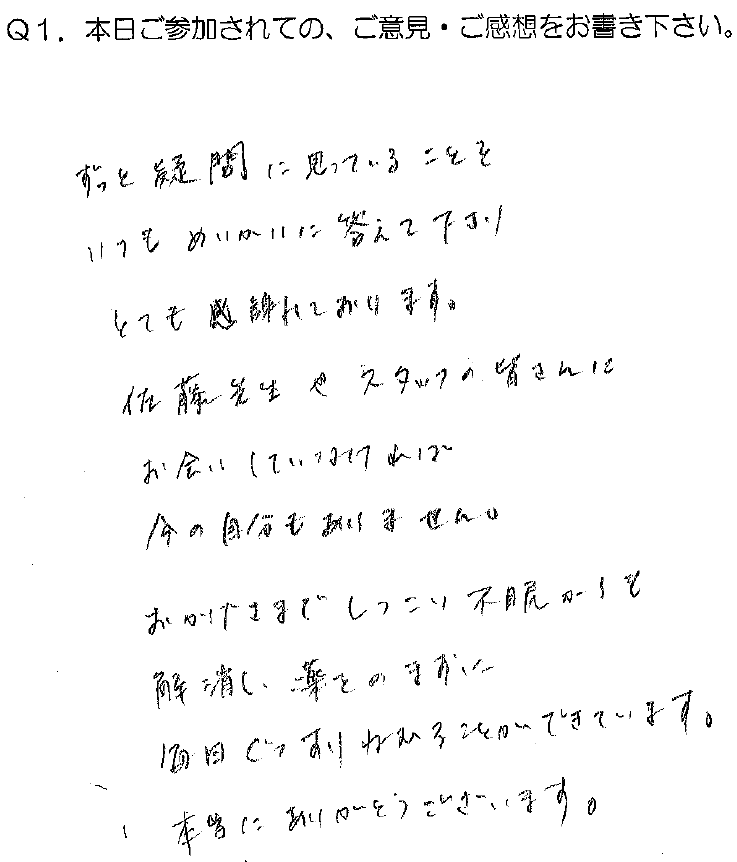 Q1. 本日ご参加されての、ご意見・ご感想をお書き下さい。
ずっと疑問に思っていることを
いつも めいかいに答えて下さり
とても感謝しております。
佐藤先生やスタッフの皆さんに
お会いしていなければ
今の自分もありません。
おかげさまでしつこい不眠からも
解消し、薬をのまずに
毎日ぐっすりねむることができています。
本当にありがとうございます。